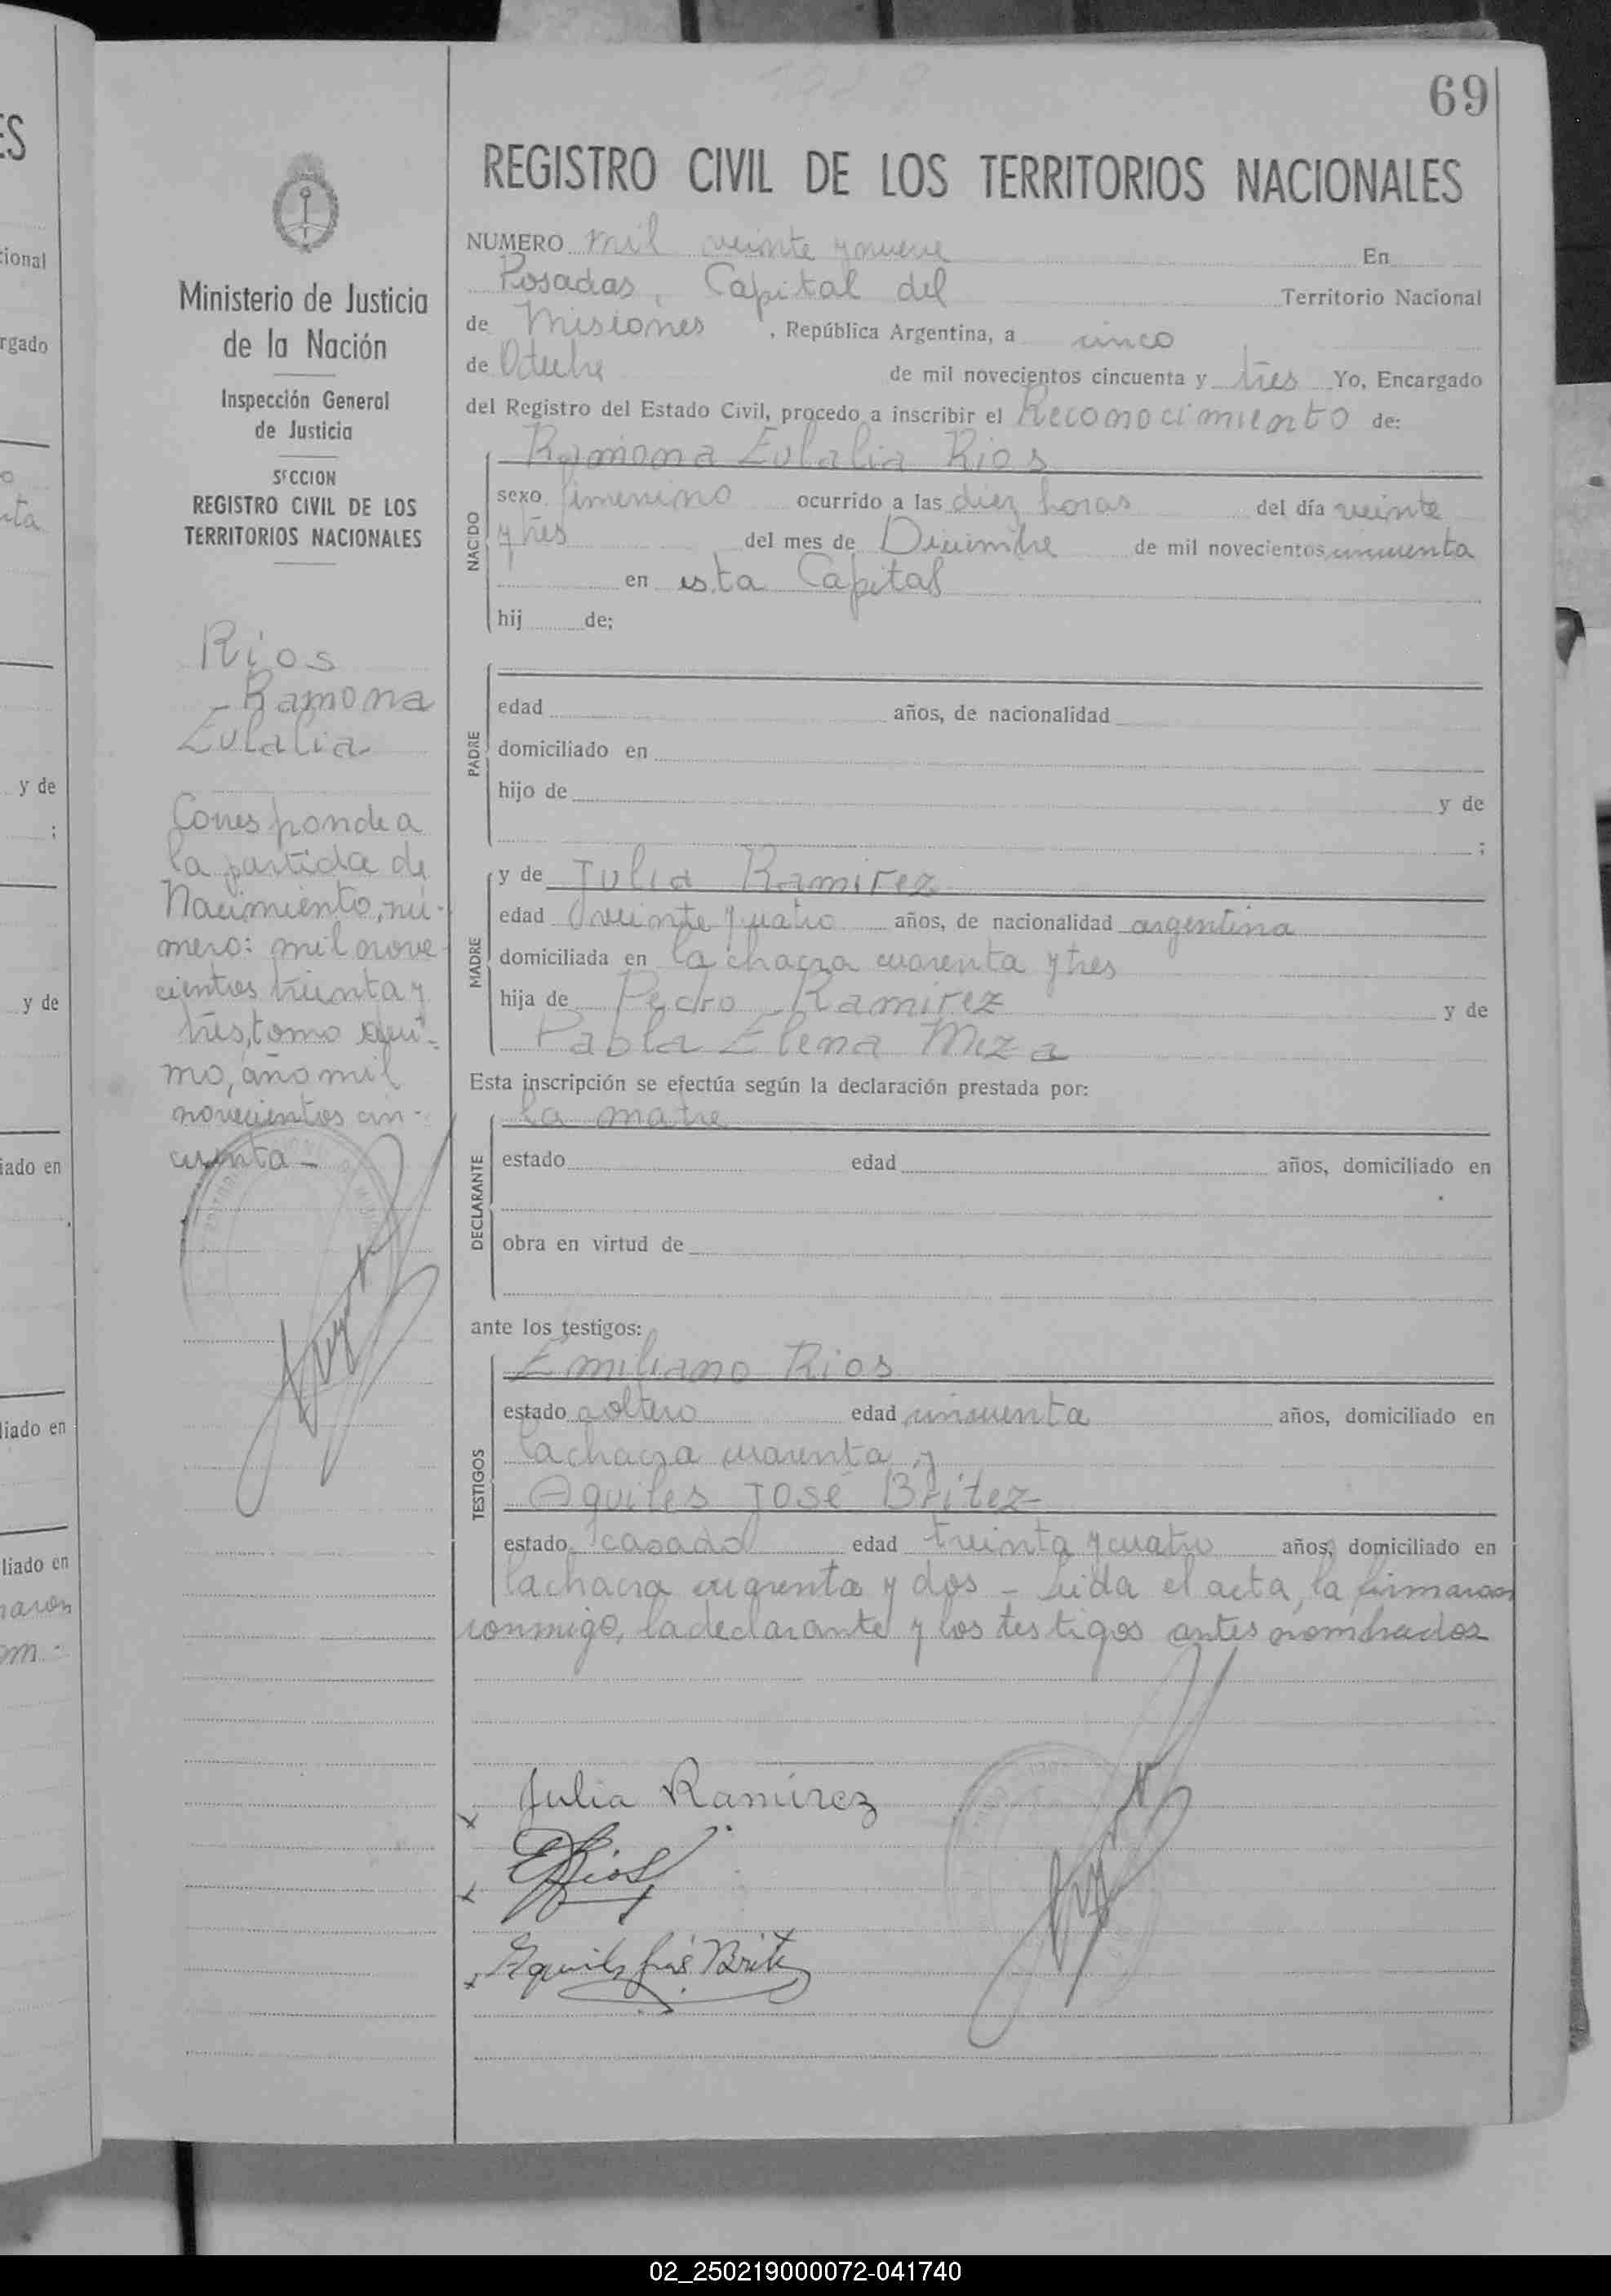 69
REGISTRO CIVIL DE LOS TERRITORIOS NACIONALES
NUMERO mil veinte y nueve En
Posadas, Capital del Territorio Nacional
de Misiones, República Argentina, a cinco
de Octubre de mil novecientos cincuenta y tres Yo, Encargado
del Registro del Estado Civil, procedo a inscribir el Reconocimiento de:
Ramona Eulalia Rios
NACIDO
sexo femenino ocurrido a las diez horas del día veinte
y tres del mes de Diciembre de mil novecientos cincuenta
en esta Capital
hij de:
PADRE
edad años, de nacionalidad
domiciliado en
hijo de y de
;
MADRE
y de Julia Ramirez
edad veinte y cuatro años, de nacionalidad argentina
domiciliada en la chacra cuarenta y tres
hija de Pedro Ramirez y de
Pabla Elena Meza
Esta inscripción se efectúa según la declaración prestada por:
la madre
DECLARANTE
estado edad años, domiciliado en
obra en virtud de
ante los testigos:
TESTIGOS
Emiliano Rios
estado soltero edad cincuenta años, domiciliado en
la chacra cuarenta y
Aquiles José Britez
estado casado edad treinta y cuatro años, domiciliado en
la chacra cuarenta y dos - Leida el acta, la firmaron
conmigo, la declarante y los testigos antes nombrados
Julia Ramírez
ERios
Aquiles José Britez
Ministerio de Justicia
de la Nación
Inspección General
de Justicia
SECCION
REGISTRO CIVIL DE LOS
TERRITORIOS NACIONALES
Rios
Ramona
Eulalia
Corresponde a
la partida de
Nacimiento, nú-
mero: mil nove
cientos treinta y
tres, tomo
mo, año mil
novecientos cin-
cuenta -
ES
cional
rgado
y de
;
y de
iado en
liado en
liado en
02_250219000072-041740